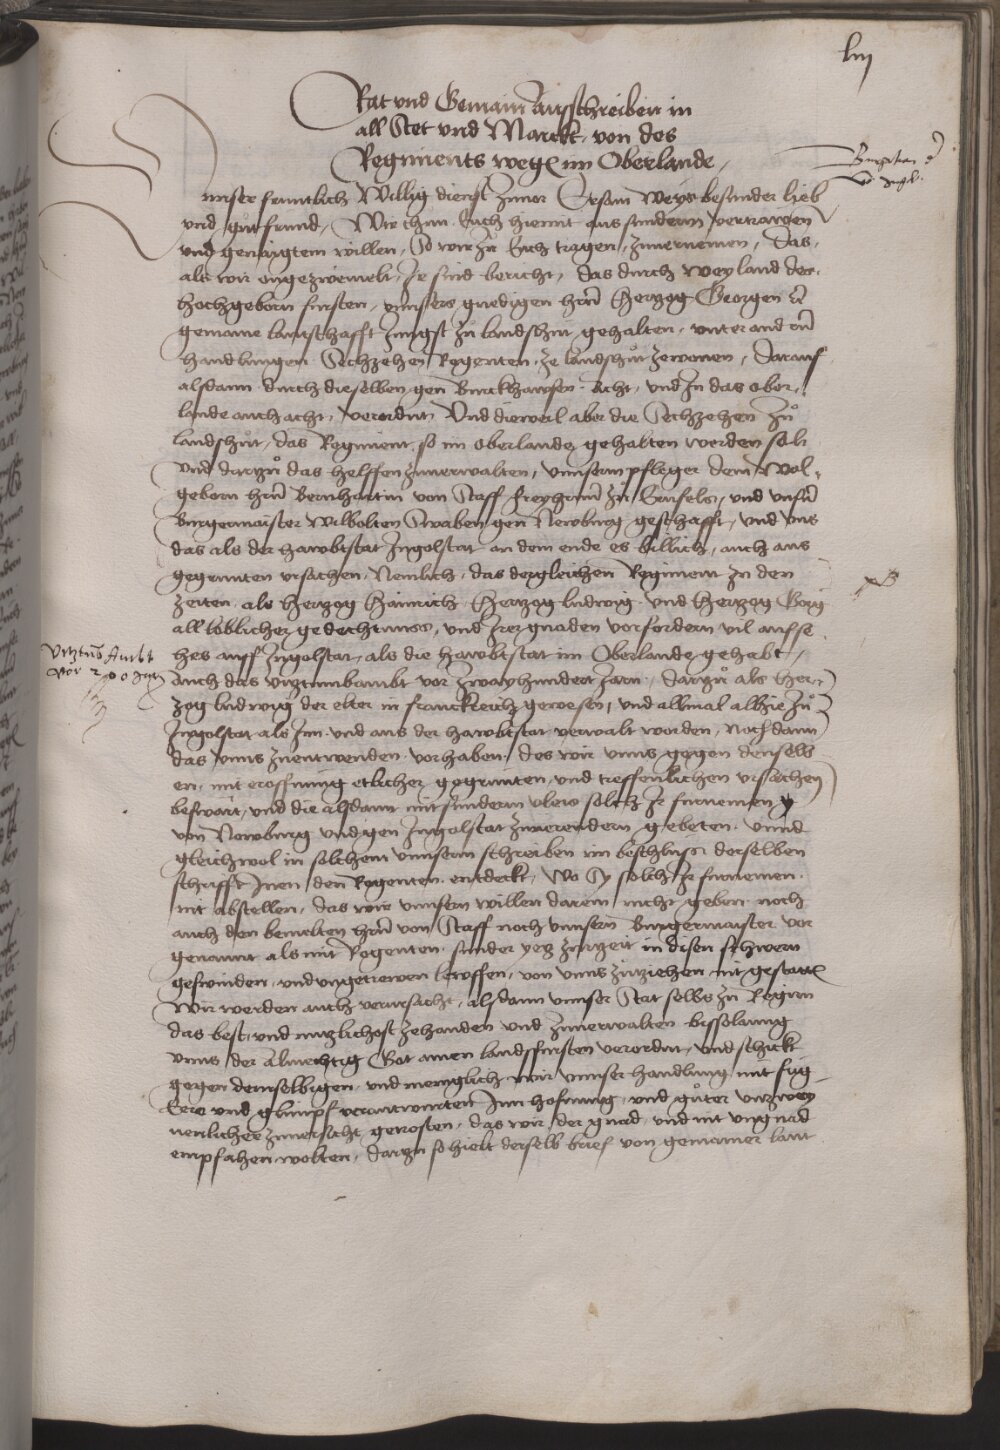 liij
Rat und Gemain Aussschreiben in
all Stet und Marckt, von des
Regiments wegen im Oberlande,
Unnser frunntlich Willig dienst zuuor Ersam Weys besunder lieb
und gut frund, Wir thun Euch hiemit aus sunderm vertrawen
und genaigtem willen, So wir zu Euch tragen, zuuernemen, Das,
als wir ongezweiuelt, Ir sind bericht, das durch weyland des
hochgeborn fursten, unnsers gnedigen hern Hertzog Georgen etc
gemaine lanntschafft Jungst zu landshut gehalten, unter andern
handlungen Sechzehen Regenten, ze landshut zewonen, darauf
alsdann durch dieselben, gen Burckhawsen Acht, und In das ober,
lande auch acht, verordnt, Und dieweil aber die Sechzehen zu
landshut, das Regiment, so im oberlande, gehalten werden solt
und dartzu das helffen zuuerwalten, unnserm pfleger dem Wol,
geborn hern Bernhartin von Stauff Freyherrn zu Ernfels, und unsern
Burgermaister Wilbolten Swaben gen Newburg geschafft, und uns
das als der hawbtstat Ingolstat an dem ende es billich, auch aus
gegrunten ursachen, Nemlich, das dergleichen Regiment zu den
zeiten, als Hertzog Hainrich, Hertzog ludwig und Hertzog Jorg
all loblicher gedechtnuss, und Irer gnaden vorfordern vil aufse
hes auff Ingolstat, als die hawbtstat im Oberlande gehabt,
Vitztumb Ambt
vor 200 Jarn
Auch das vitztumbambt vor zwayhundert Jarn, dartzu als Her,
zog ludwig der elter in franckreich gewesen, und allmal alhie zu
Ingolstat als Inn, und aus der hawbtstat verwalt worden, noch dann
das unns zuentwenden vorhaben, des wir unns gegen denselb
en, mit eroffnung etlicher gegrunten, und treffenlichen ursachen
beswart, und die alsdann mit sunderm vleis solch Ir furnemen
von Newburg und gen Ingolstat zuuerendern gebeten, unnd
gleichwol in solchem unnserm schreiben im beschluss derselben
schrifft Inen den Regenten entdeckt, Wo Sy solch Ir furnemen
nit abstellen, das wir unnsern willen darein nicht geben, noch
auch den bemelten hern von Stauff noch unnsern Burgermaister vor
genannt als mit Regenten, sunder yetz zurzeit in disen schwern
geswinden, und ungetrewen lewffen, von unns zuziehen nit gestatten
Wir werden auch verursacht, alsdann unnser Stat selbs zu Regirn
das best, und nutzlichost zehanden und zuuerwalten bissolanng
unns der Almechtig Got ainen landsfursten verordnt, und schickt
gegen demselbigen, und meniglich, wir unnser handlung mit fug
Ere und glimpf verantwurten Inn hofnung, und guter unzwey
uenlicher zuuersicht, getrosten, das wir der gnad, und nit ungnad
empfahen wolten, dartzu so hielt derselb brief von gemainer lant